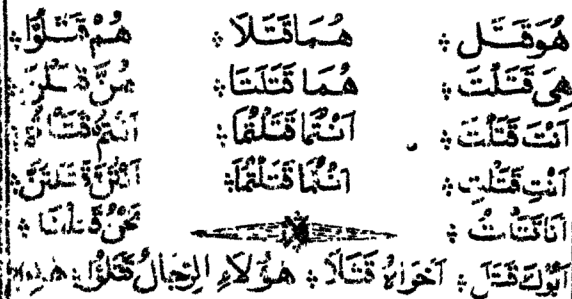 هُوَ قَتَلَ ⁘ هُمَا قَتَلَا ⁘ هُمْ قَتَلُوْا ⁘
هِیَ قَتَلَتْ ⁘ هُمَا قَتَلَتَا ⁘ هُنَّ قَتَلْنَ ⁘
اَنْتَ قَتَلْتَ ⁘ اَنْتُمَا قَتَلْتُمَا ⁘ اَنْتُمْ قَتَلْتُمْ ⁘
اَنْتِ قَتَلْتِ ⁘ اَنْتُمَا قَتَلْتُمَا ⁘ اَنْتُنَّ قَتَلْتُنَّ ⁘
اَنَا قَتَلْتُ ⁘ نَحْنُ قَتَلْنَا ⁘
اَبُوْكَ قَتَلَ ⁘ اَخَوَاهُ قَتَلَا ⁘ هٰؤُلَاءِ الرِّجَالُ قَتَلُوْا ⁘